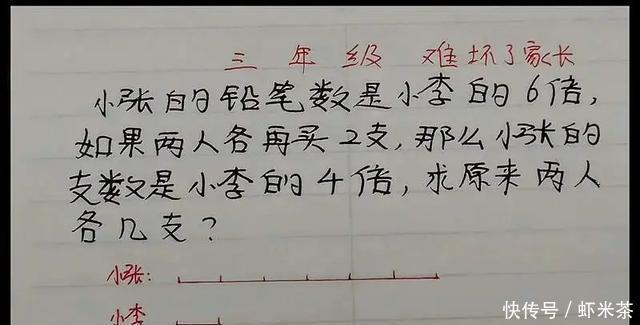 三年级 难坏了家长
小张的铅笔数是小李的6倍,
如果两人各再买2支,那么小张的
支数是小李的4倍,求原来两人
各几支?
小张:
小李
快传号/虾米茶